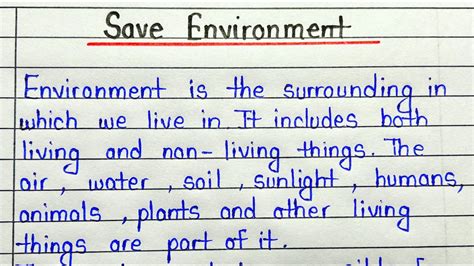 Save Environment
Environment is the surrounding in
which we live in It includes both
living and non-living things. The
air, water, soil, sunlight, humans,
animals, plants and other living
things are part of it.